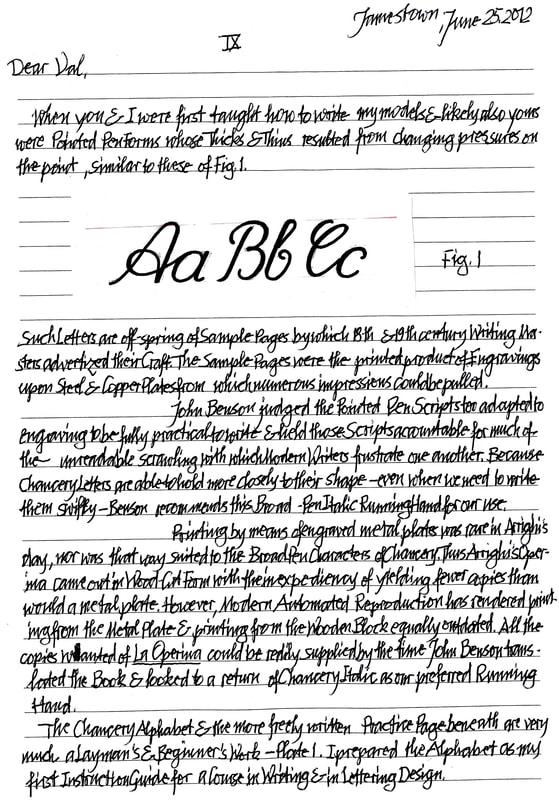 Jamestown, June 25.2012
IX
Dear Val,
When you & I were first taught how to write my models & likely also yours
were Pointed Pen Forms whose Thicks & Thins resulted from changing pressures on
the point, similar to these of Fig. 1.
Aa Bb Cc
Fig. 1
Such Letters are off-spring of Sample Pages by which 18th & 19th century Writing Ma-
sters advertized their Craft. The Sample Pages were the printed product of Engravings
upon Steel & Copper Plates from which numerous impressions could be pulled.
John Benson judged the Pointed Pen Scripts too adapted to
engraving to be fully practical to write & held those Scripts accountable for much of
the unreadable scrawling with which Modern Writers frustrate one another. Because
Chancery Letters are able to hold more closely to their shape – even when we need to write
them swiftly – Benson recommends this Broad-Pen Italic Running Hand for our use.
Printing by means of engraved metal plates was rare in Arrighi's
day, nor was that way suited to the Broad Pen Characters of Chancery. Thus Arrighi's Oper-
ina came out in Wood Cut Form with the inexpediency of yielding fewer copies than
would a metal plate. However, Modern Automated Reproduction has rendered print-
ing from the Metal Plate & printing from the Wooden Block equally outdated. All the
copies wanted of La Operina could be readily supplied by the time John Benson trans-
lated the Book & looked to a return of Chancery Italic as our preferred Running
Hand.
The Chancery Alphabet & the more freely written Practice Page beneath are very
much a Layman's & Beginner's Work – Plate 1. I prepared the Alphabet as my
first Instruction Guide for a Course in Writing & in Lettering Design.